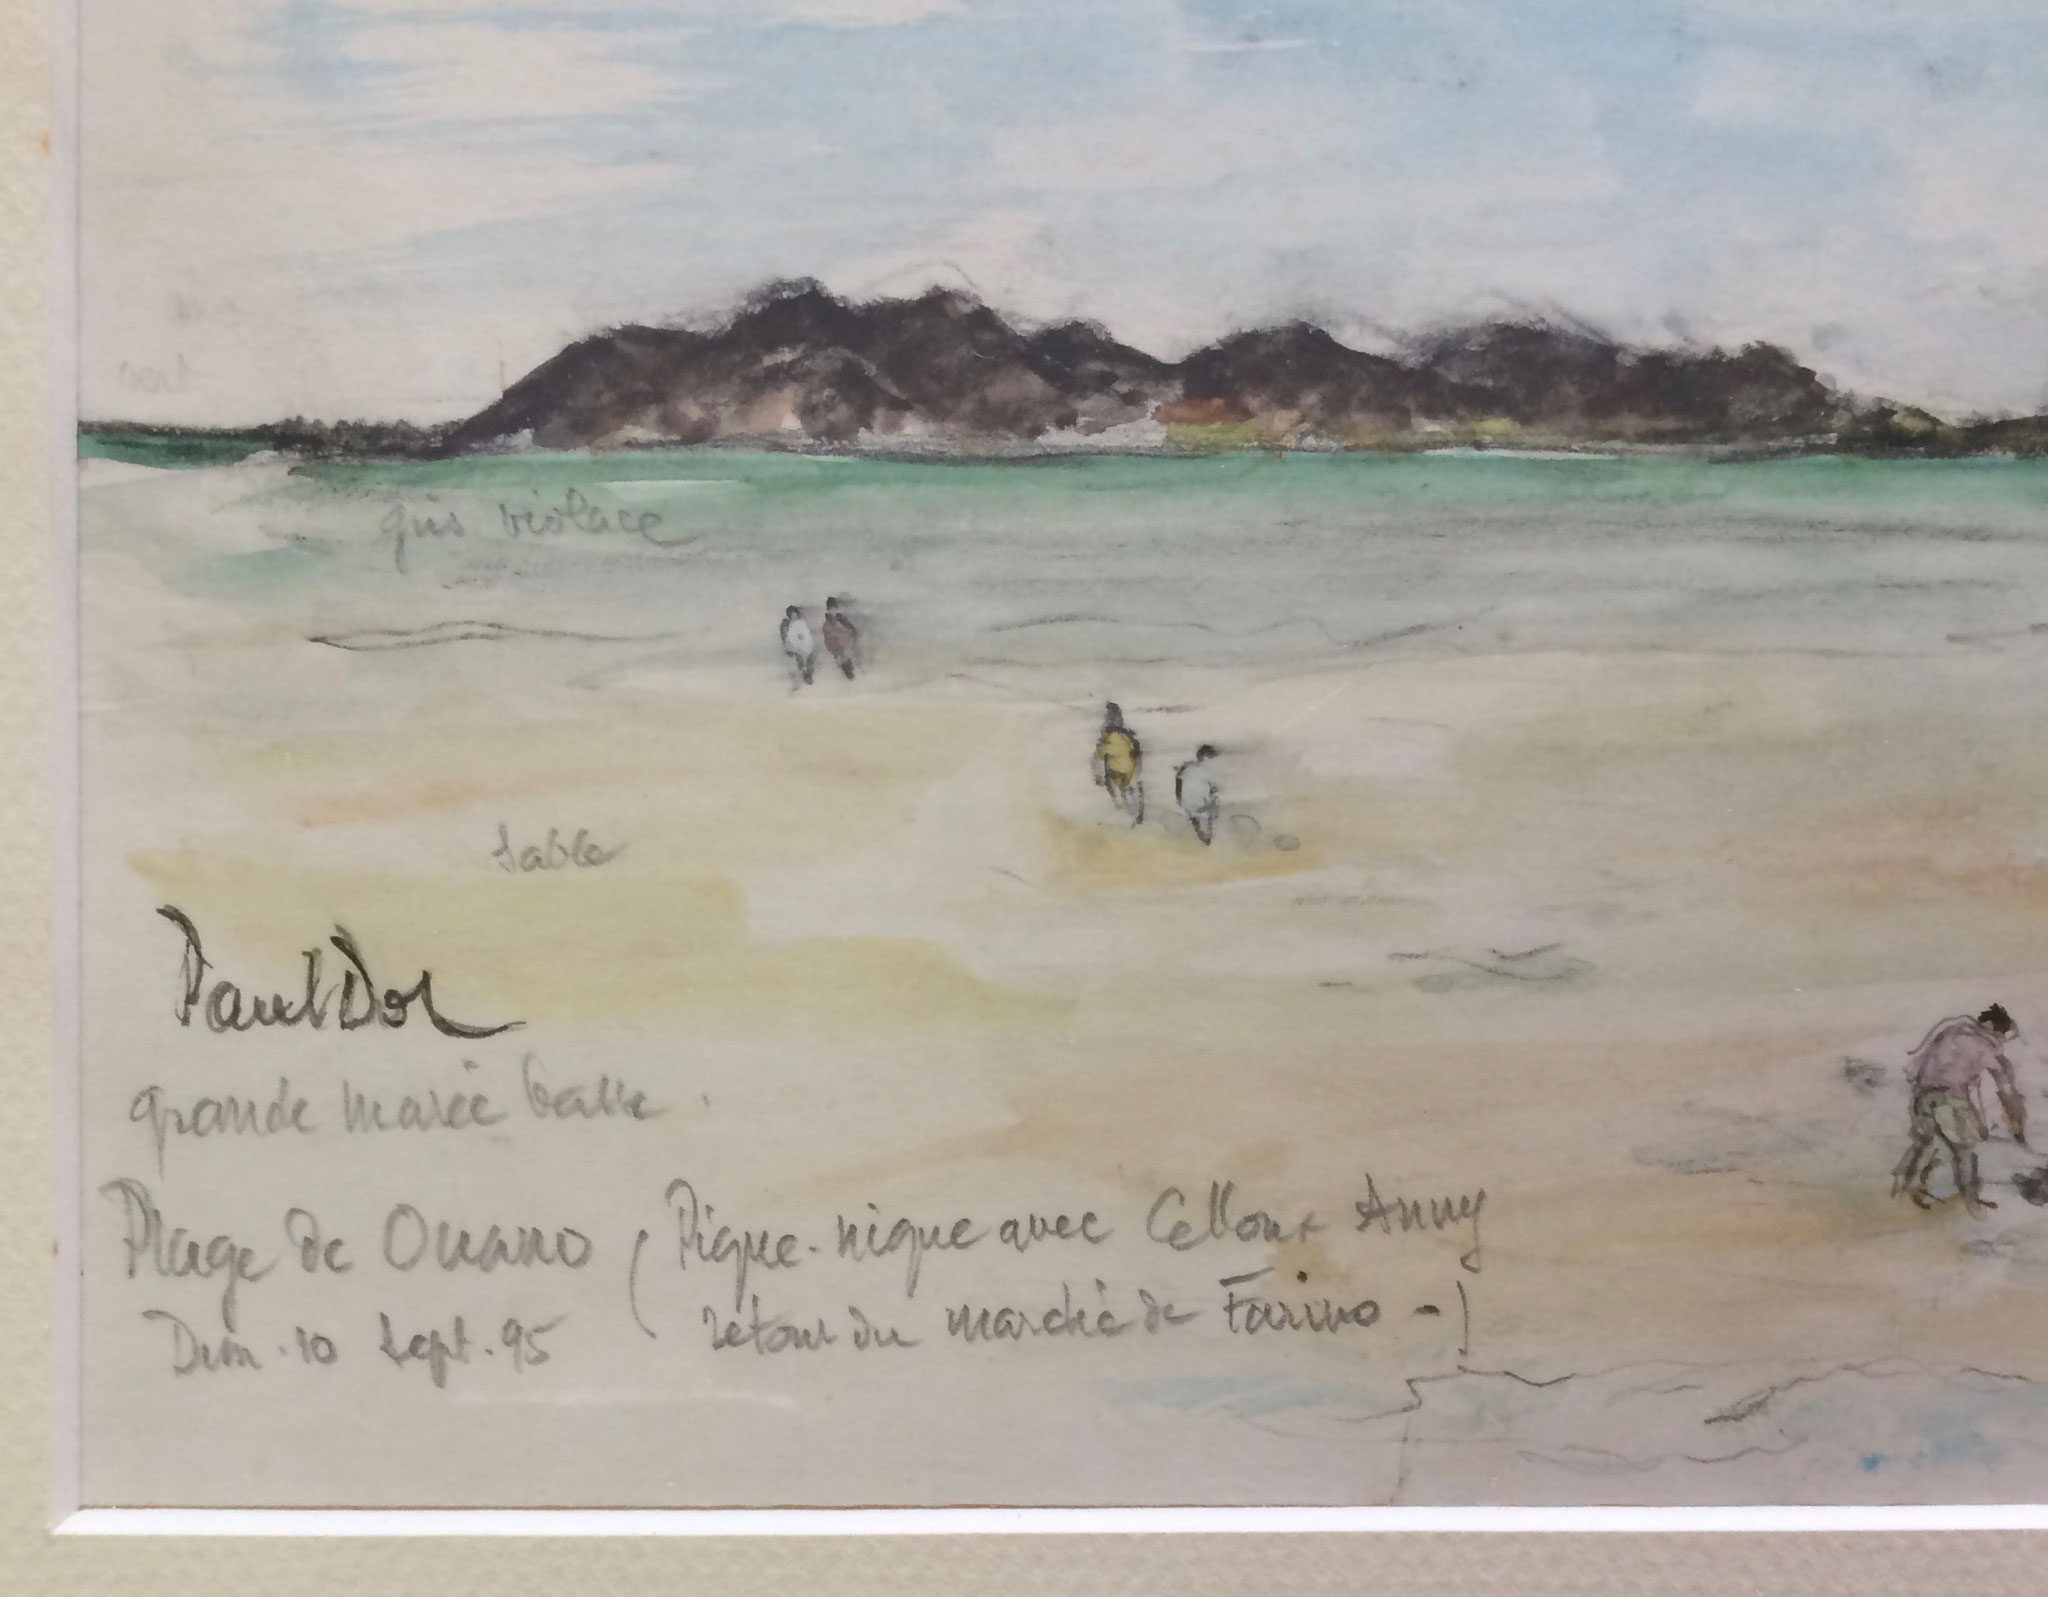 vert
gris violacé
sable
Paul Dol
grande marée basse.
Plage de Ouano (Pique-nique avec Anny
Dim. 10 Sept. 95 retour du marché de Farino -)